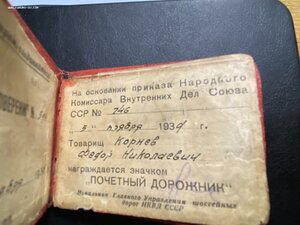 На основании приказа Народного
Комиссара Внутренних Дел Союза
ССР № 246
„5" ноября 1939 г.
Товарищ Корнев
Федор Николаевич
награждается значком
„ПОЧЕТНЫЙ ДОРОЖНИК"
Начальник Главного Управления шоссейных
дорог НКВД СССР